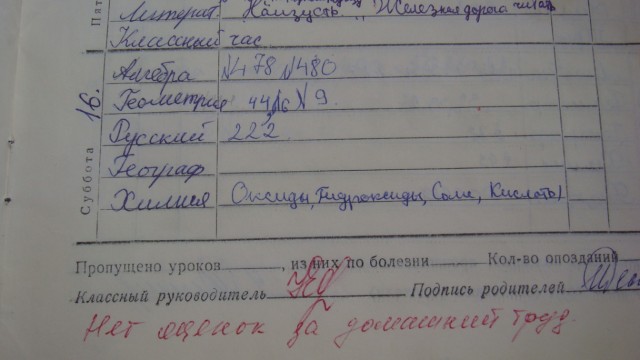 Пят
Литерат. Наизусть „Железная дорога читат
Классный час.
Алгебра №478 №480
Суббота 16.
Геометрия 44 № 9.
Русский 222
Географ
Химия Оксиды, Гидроксиды, Соли, Кислоты
Пропущено уроков , из них по болезни Кол-во опозданий
Классный руководитель Подпись родителей
Нет оценок за домашний труд.